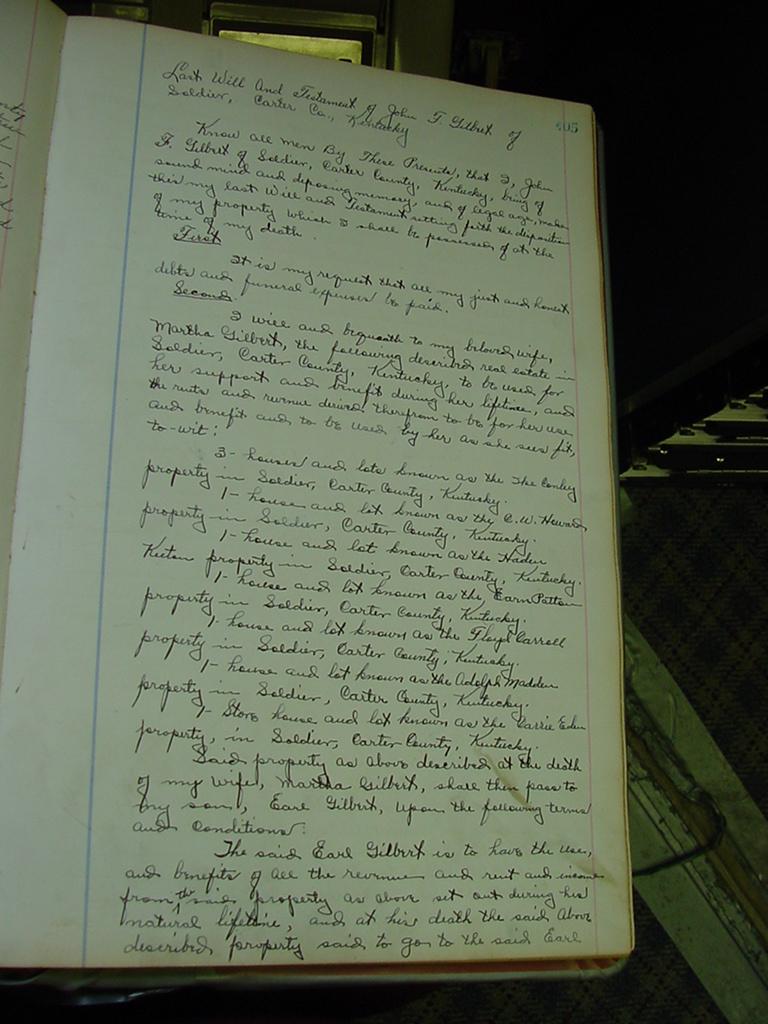 405
Last Will And Testament of John F. Gilbert of
Soldier, Carter Co., Kentucky
Know all men By These Presents, that I, John
F. Gilbert of Soldier, Carter County, Kentucky, being of
sound mind and deposing memory, and of legal age, make
this my last Will and Testament setting forth the disposition
of my property which I shall be possessed of at the
time of my death.
First
It is my request that all my just and honest
debts and funeral expenses be paid.
Second.
I will and bequeath to my beloved wife,
Martha Gilbert, the following described real estate in
Soldier, Carter County, Kentucky, to be used for
her support and benefit during her lifetime, and
the rents and revenue derived therefrom to be for her use
and benefit and to be used by her as she sees fit,
to-wit:
3- houses and lots known as the The Conley
property in Soldier, Carter County, Kentucky.
1- house and lot known as the C. W. Howard
property in Soldier, Carter County, Kentucky.
1- house and lot known as the Haden
Keeton property in Soldier, Carter County, Kentucky.
1- house and lot known as the Earn Patton
property in Soldier, Carter County, Kentucky.
1- house and lot known as the Floyd Carroll
property in Soldier, Carter County, Kentucky.
1- house and lot known as the Adolph Madden
property in Soldier, Carter County, Kentucky.
1- Store house and lot known as the Carrie Eden
property, in Soldier, Carter County, Kentucky.
Said property as above described at the death
of my wife, Martha Gilbert, shall then pass to
my son, Earl Gilbert, upon the following terms
and conditions:
The said Earl Gilbert is to have the use,
and benefits of all the revenue and rent and income
from the said property as above set out during his
natural lifetime, and at his death the said above
described property said to go to the said Earl